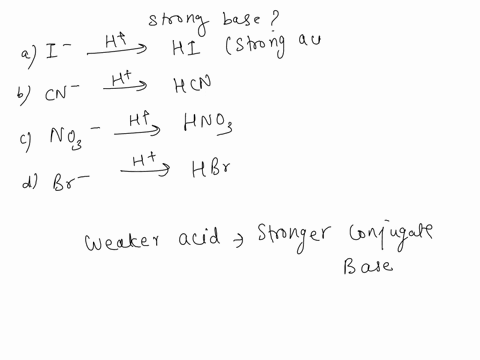 strong base ?
a) I⁻ H⁺→ HI (Strong
b) CN⁻ H⁺→ HCN
c) NO₃⁻ H⁺→ HNO₃
d) Br⁻ H⁺→ HBr
Weaker acid → Stronger Conjugate
Base